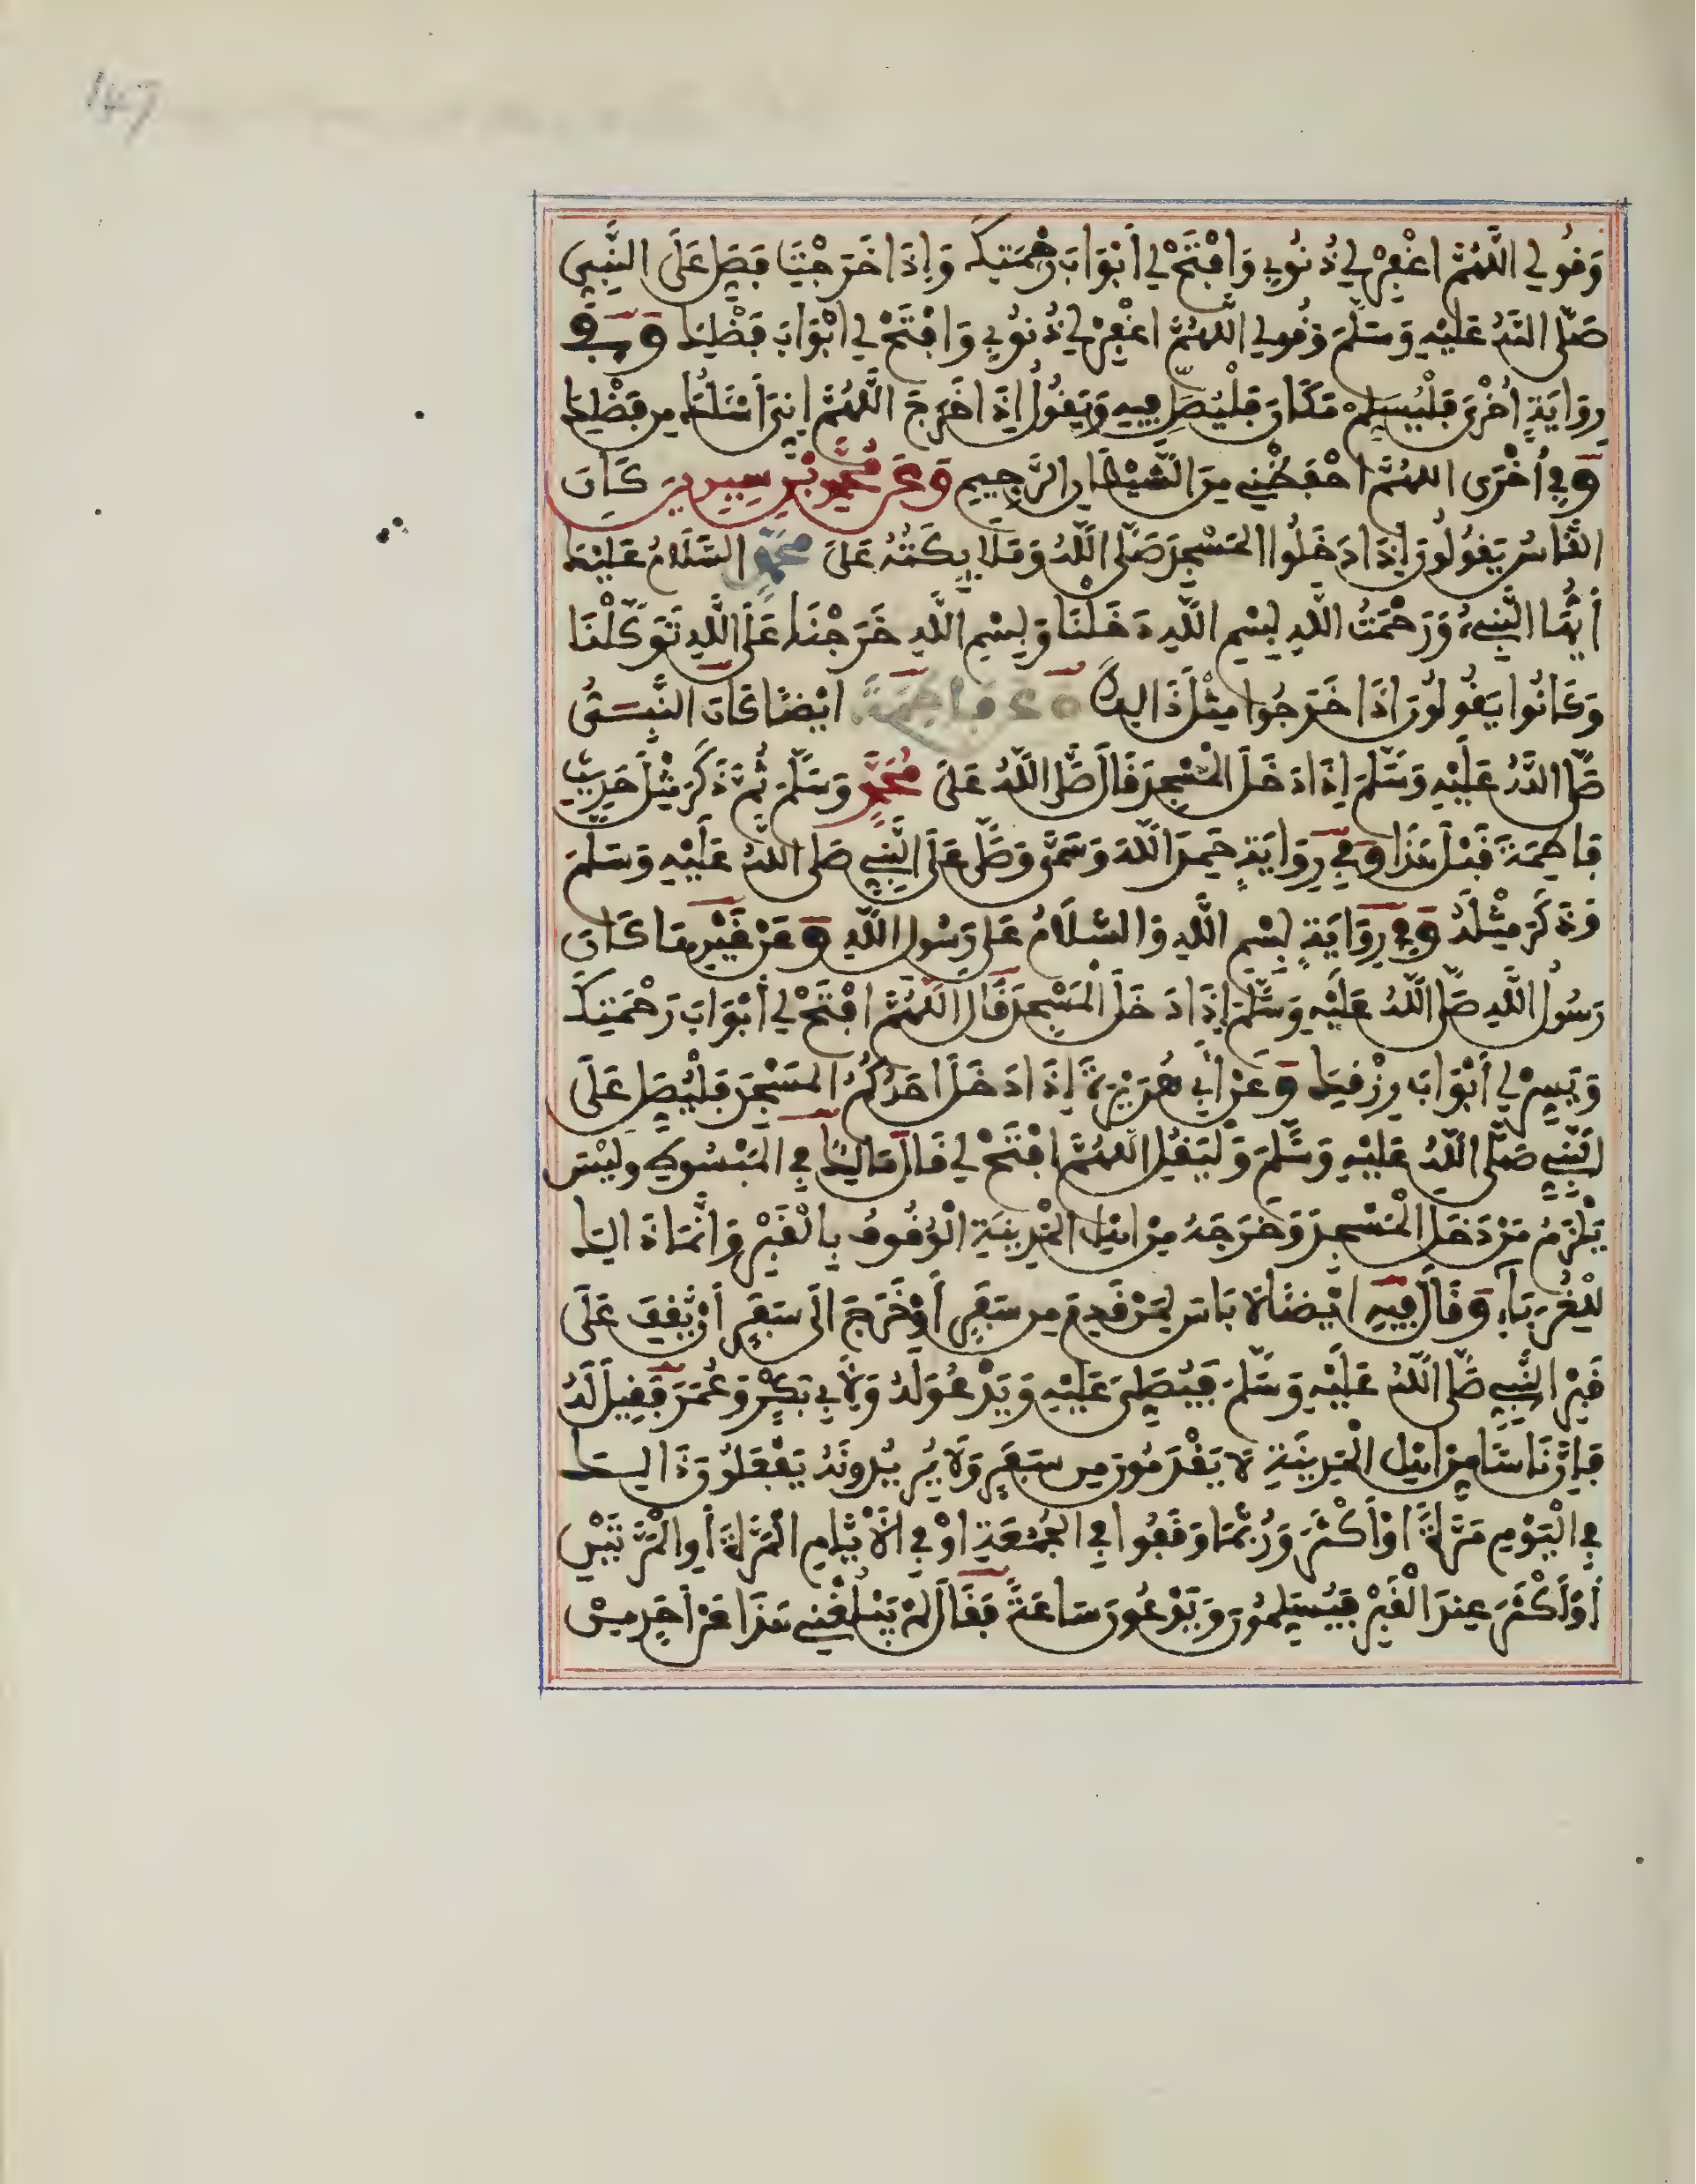 147
وَقُولِي اللَّهُمَّ اغْفِرْ لِي ذُنُوبِي وَافْتَحْ لِي أَبْوَابَ رَحْمَتِكَ وَإِذَا خَرَجْتِ فَصَلِّ عَلَى النَّبِيِّ
صَلَّى اللَّهُ عَلَيْهِ وَسَلَّمَ وَقُولِي اللَّهُمَّ اغْفِرْ لِي ذُنُوبِي وَافْتَحْ لِي أَبْوَابَ فَضْلِكَ وَفِي
رِوَايَةٍ أُخْرَى فَلْيُسَلِّمْ مَكَانَ فَلْيُصَلِّ فِيهِ وَيَقُولُ إِذَا خَرَجَ اللَّهُمَّ إِنِّي أَسْئَلُكَ مِن فَضْلِكَ
وَفِي أُخْرَى اللَّهُمَّ احْفَظْنِي مِنَ الشَّيْطَانِ الرَّجِيمِ وَعَنْ مُحَمَّدِ بْنِ سِيرِينَ كَانَ
النَّاسُ يَقُولُونَ إِذَا دَخَلُوا الْمَسْجِدَ صَلَّى اللَّهُ وَمَلَايِكَتُهُ عَلَى مُحَمَّدٍ السَّلَامُ عَلَيْكَ
أَيُّهَا النَّبِيُّ وَرَحْمَتُ اللَّهِ بِسْمِ اللَّهِ دَخَلْنَا وَبِسْمِ اللَّهِ خَرَجْنَا عَلَى اللَّهِ تَوَكَّلْنَا
وَكَانُوا يَقُولُونَ إِذَا خَرَجُوا مِثْلَ ذَالِكَ وَعَن فَاطِمَةَ أَيْضًا كَانَ النَّبِيُّ
صَلَّى اللَّهُ عَلَيْهِ وَسَلَّمَ إِذَا دَخَلَ الْمَسْجِدَ قَالَ صَلَّى اللَّهُ عَلَى مُحَمَّدٍ وَسَلَّمَ ثُمَّ ذَكَرَ مِثْلَ حَدِيثِ
فَاطِمَةَ قَبْلَ هَذَا وَفِي رِوَايَةٍ حَمِدَ اللَّهَ وَسَمَّى وَصَلَّى عَلَى النَّبِيِّ صَلَّى اللَّهُ عَلَيْهِ وَسَلَّمَ
وَذَكَرَ مِثْلَهُ وَفِي رِوَايَةٍ بِسْمِ اللَّهِ وَالسَّلَامُ عَلَى رَسُولِ اللَّهِ وَعَنْ غَيْرِهَا كَانَ
رَسُولُ اللَّهِ صَلَّى اللَّهُ عَلَيْهِ وَسَلَّمَ إِذَا دَخَلَ الْمَسْجِدَ قَالَ اللَّهُمَّ افْتَحْ لِي أَبْوَابَ رَحْمَتِكَ
وَيَسِّرْ لِي أَبْوَابَ رِزْقِكَ وَعَنْ أَبِي هُرَيْرَةَ إِذَا دَخَلَ أَحَدُكُمُ الْمَسْجِدَ فَلْيُصَلِّ عَلَى
النَّبِيِّ صَلَّى اللَّهُ عَلَيْهِ وَسَلَّمَ وَلْيَقُلِ اللَّهُمَّ افْتَحْ لِي قَالَ مَالِكٌ فِي الْمَبْسُوطِ وَلَيْسَ
يَلْزَمُ مَنْ دَخَلَ الْمَسْجِدَ وَخَرَجَ مِنْهُ مِنْ أَهْلِ الْمَدِينَةِ الْوُقُوفُ بِالْقَبْرِ وَإِنَّمَا ذَالِكَ
لِلْغُرَبَاءِ وَقَالَ فِيهِ أَيْضًا لَا بَاسَ لِمَنْ قَدِمَ مِن سَفَرٍ أَوْ خَرَجَ إِلَى سَفَرٍ أَنْ يَقِفَ عَلَى
قَبْرِ النَّبِيِّ صَلَّى اللَّهُ عَلَيْهِ وَسَلَّمَ فَيُصَلِّيَ عَلَيْهِ وَيَدْعُوَ لَهُ وَلِأَبِي بَكْرٍ وَعُمَرَ فَقِيلَ لَهُ
فَإِنَّ نَاسًا مِنْ أَهْلِ الْمَدِينَةِ لَا يَقْدَمُونَ مِن سَفَرٍ وَلَا يُرِيدُونَهُ يَفْعَلُونَ ذَالِكَ
فِي الْيَوْمِ مَرَّةً أَوْ أَكْثَرَ وَرُبَّمَا وَقَفُوا فِي الْجُمُعَةِ أَوْ فِي الْأَيَّامِ الْمَرَّةَ أَوِ الْمَرَّتَيْنِ
أَوْ أَكْثَرَ عِنْدَ الْقَبْرِ فَيُسَلِّمُونَ وَيَدْعُونَ سَاعَةً فَقَالَ لَمْ يَبْلُغْنِي هَذَا عَنْ أَحَدٍ مِنْ